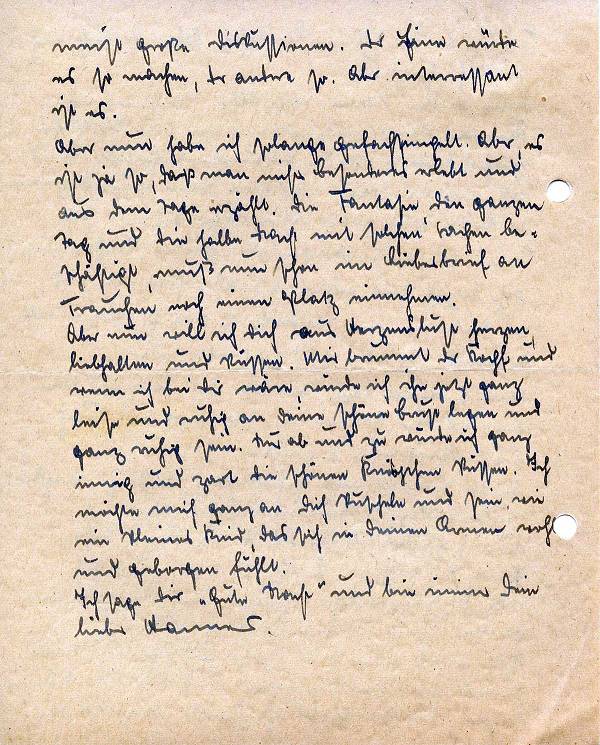 meist große Diskussionen. Der Eine würde
es so machen, der andere so. Aber interressant
ist es.
Aber nun habe ich solange gefachsimpelt. Aber es
ist ja so, daß man nichts besonderes erlebt und
aus dem Tage erzählt. Die Fantasie den ganzen
Tag und die halbe Nacht mit solchen Sachen be-
schäftigt, muß nun schon im Liebesbrief an
Frauchen noch einen Platz einnehmen.
Aber nun will ich Dich aus Herzenslust herzen,
liebhalten und küssen. Mir brummt der Kopf und
wenn ich bei Dir wäre, würde ich ihn jetzt ganz
leise und ruhig an Deine schöne Brust legen und
ganz ruhig sein. Nur ab und zu würde ich ganz
innig und zart die schönen Knöspchen küssen. Ich
möchte mich ganz an Dich kuscheln und sein wie
ein kleines Kind, das sich in Deinen Armen wohl
und geborgen fühlt.
Ich sage Dir „Gute Nacht" und bin immer Dein
lieber Hannes.